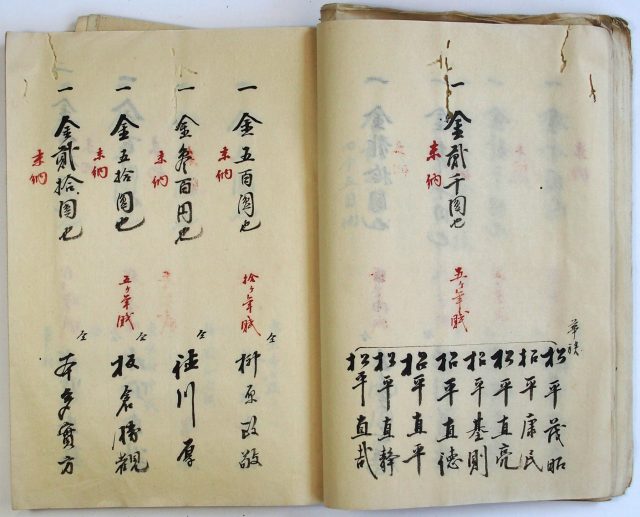 一金貳千圓也
未納
五ヶ年賦
華族
松平茂昭
松平康民
松平直亮
松平基則
松平直德
松平直平
松平直静
松平直哉
一金五百圓也
未納
拾ヶ年賦
仝 榊原政敬
一金參百円也
未納
仝 德川厚
一金五拾圓也
未納
五ヶ年賦
仝 板倉勝觀
一金貳拾圓也
未納
仝 本多實方